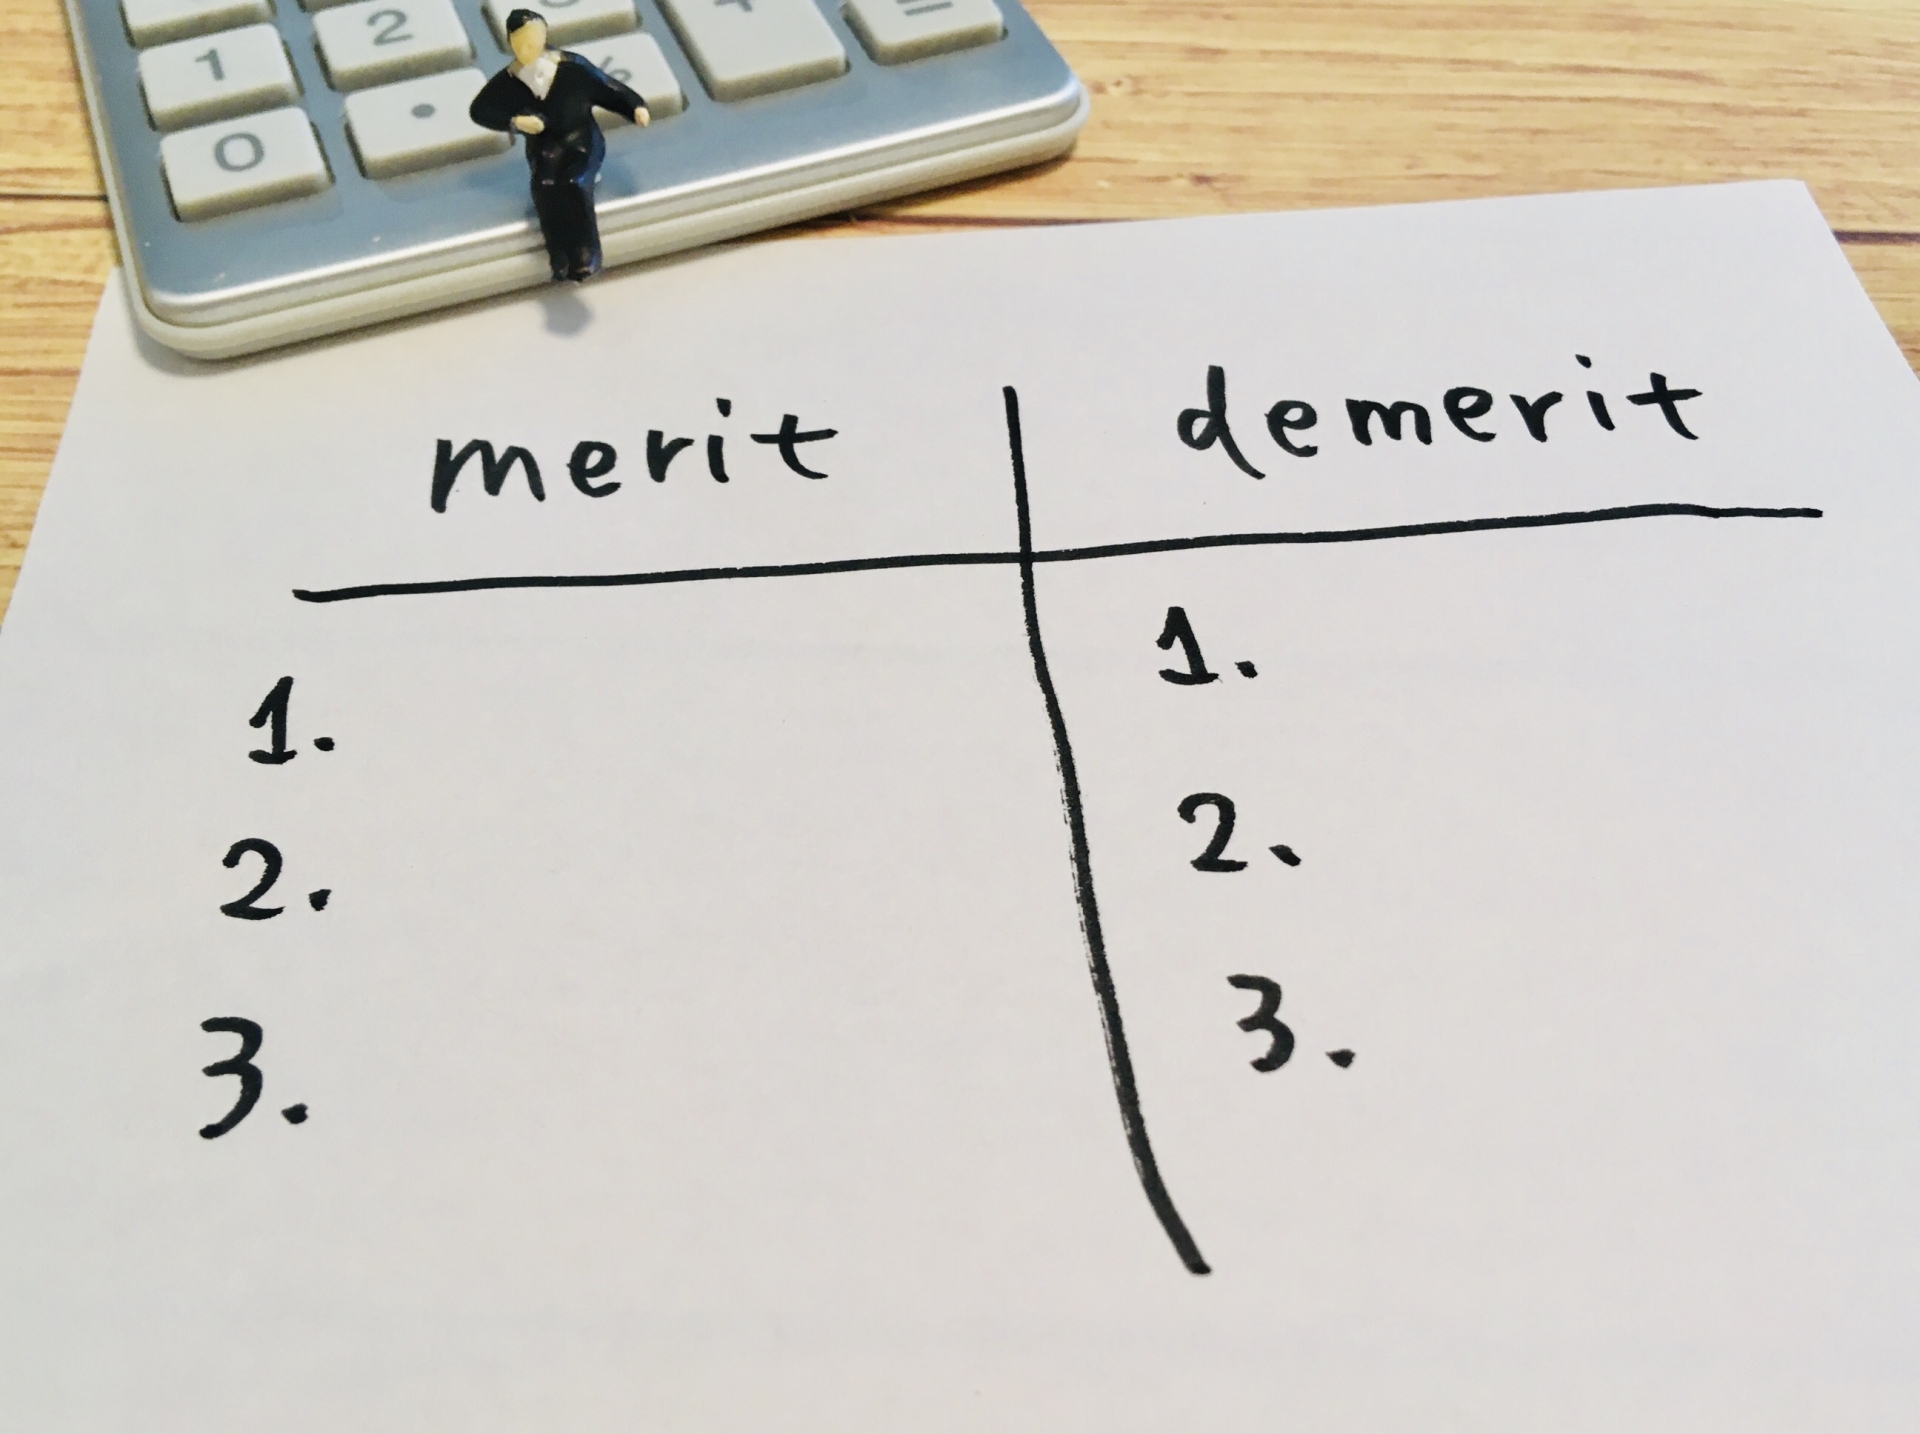 1 2 %
0 . + =
merit demerit
1. 1.
2. 2.
3. 3.